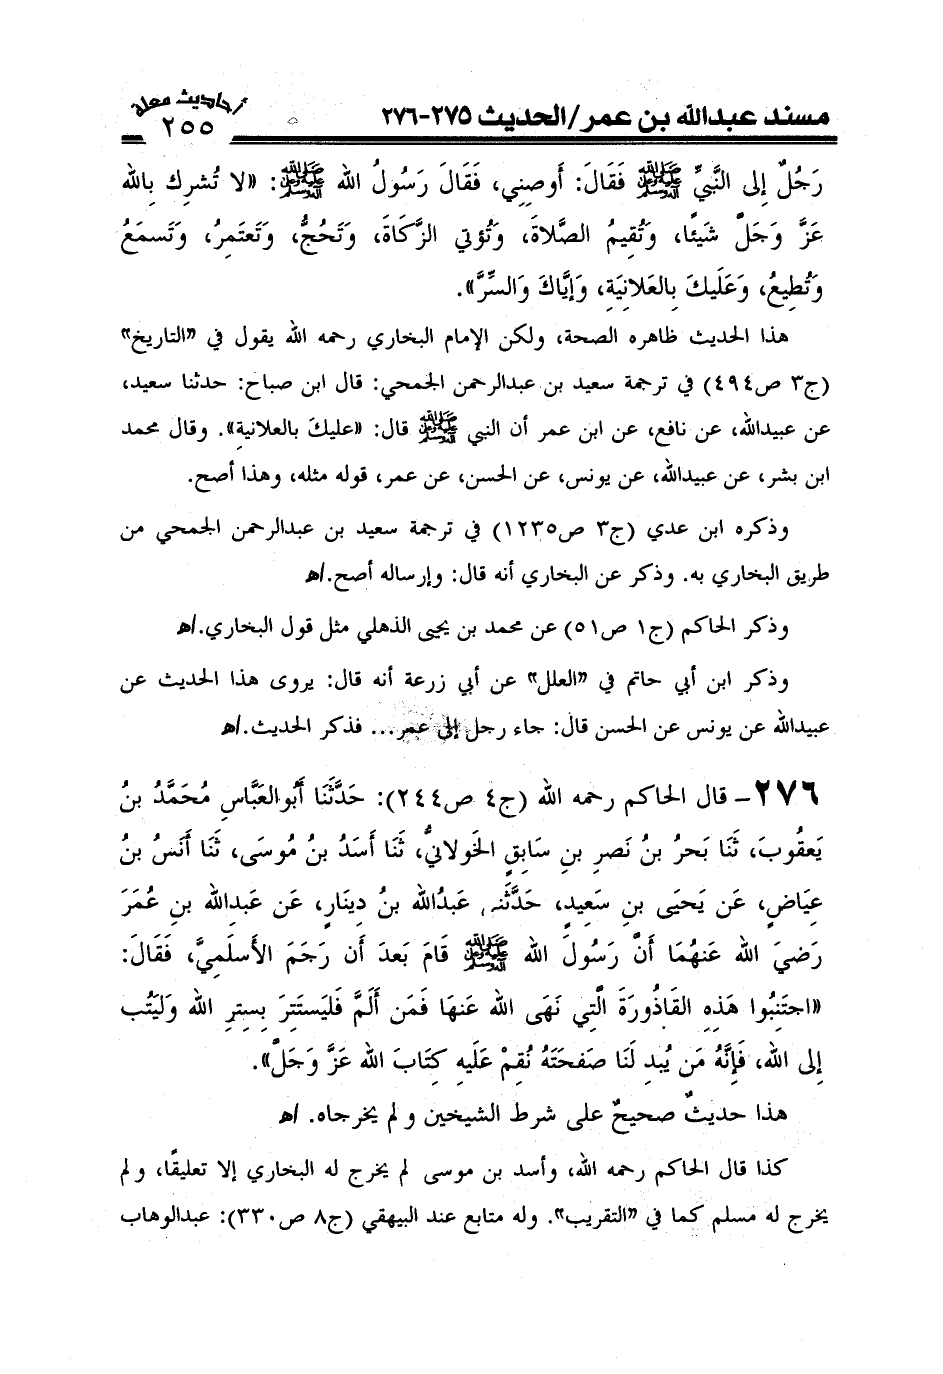 أحاديث معلة
٢٥٥
مسند عبدالله بن عمر/الحديث ٢٧٥-٢٧٦
رَجُلٌ إِلى النَّبِيِّ ﷺ فَقَالَ: أَوصِنِي، فَقَالَ رَسُولُ الله ﷺ: «لا تُشرِك بِالله
عَزَّ وَجَلَّ شَيئًا، وَتُقِيمُ الصَّلاةَ، وَتُؤتِي الزَّكَاةَ، وَتَحُجُّ، وَتَعتَمِرُ، وَتَسمَعُ
وَتُطِيعُ، وَعَلَيكَ بِالعَلانِيَةِ، وَإِيَّاكَ وَالسِّرَّ».
هذا الحديث ظاهره الصحة، ولكن الإمام البخاري رحمه الله يقول في «التاريخ»
(ج٣ ص٤٩٤) في ترجمة سعيد بن عبدالرحمن الجمحي: قال ابن صباح: حدثنا سعيد،
عن عبيدالله، عن نافع، عن ابن عمر أن النبي ﷺ قال: «عليكَ بالعلانيةِ». وقال محمد
ابن بشر، عن عبيدالله، عن يونس، عن الحسن، عن عمر، قوله مثله، وهذا أصح.
وذكره ابن عدي (ج٣ ص١٢٣٥) في ترجمة سعيد بن عبدالرحمن الجمحي من
طريق البخاري به. وذكر عن البخاري أنه قال: وإرساله أصح.اهـ
وذكر الحاكم (ج١ ص٥١) عن محمد بن يحيى الذهلي مثل قول البخاري.اهـ
وذكر ابن أبي حاتم في «العلل» عن أبي زرعة أنه قال: يروى هذا الحديث عن
عبيدالله عن يونس عن الحسن قال: جاء رجل إلى عمر... فذكر الحديث.اهـ
٢٧٦- قال الحاكم رحمه الله (ج٤ ص٢٤٤): حَدَّثَنَا أَبُوالعَبَّاسِ مُحَمَّدُ بنُ
يَعقُوبَ، ثَنَا بَحرُ بنُ نَصرِ بنِ سَابِقٍ الخَولانيُّ، ثَنَا أَسَدُ بنُ مُوسَى، ثَنَا أَنَسُ بنُ
عِيَاضٍ، عَن يَحيَى بنِ سَعِيدٍ، حَدَّثَنِي عَبدُالله بنُ دِينَارٍ، عَن عَبدِالله بنِ عُمَرَ
رَضِيَ الله عَنهُمَا أَنَّ رَسُولَ الله ﷺ قَامَ بَعدَ أَن رَجَمَ الأَسلَمِيَّ، فَقَالَ:
«اجتَنِبُوا هَذِهِ القَاذُورَةَ الَّتِي نَهَى الله عَنهَا فَمَن أَلَمَّ فَليَستَتِرَ بِسِترِ الله وَليَتُب
إِلى الله، فَإِنَّهُ مَن يُبدِ لَنَا صَفحَتَهُ نُقِمْ عَلَيهِ كِتَابَ الله عَزَّ وَجَلَّ».
هذا حديثٌ صحيحٌ على شرط الشيخين ولم يخرجاه. اهـ
كذا قال الحاكم رحمه الله، وأسد بن موسى لم يخرج له البخاري إلا تعليقًا، ولم
يخرج له مسلم كما في «التقريب». وله متابع عند البيهقي (ج٨ ص٣٣٠): عبدالوهاب